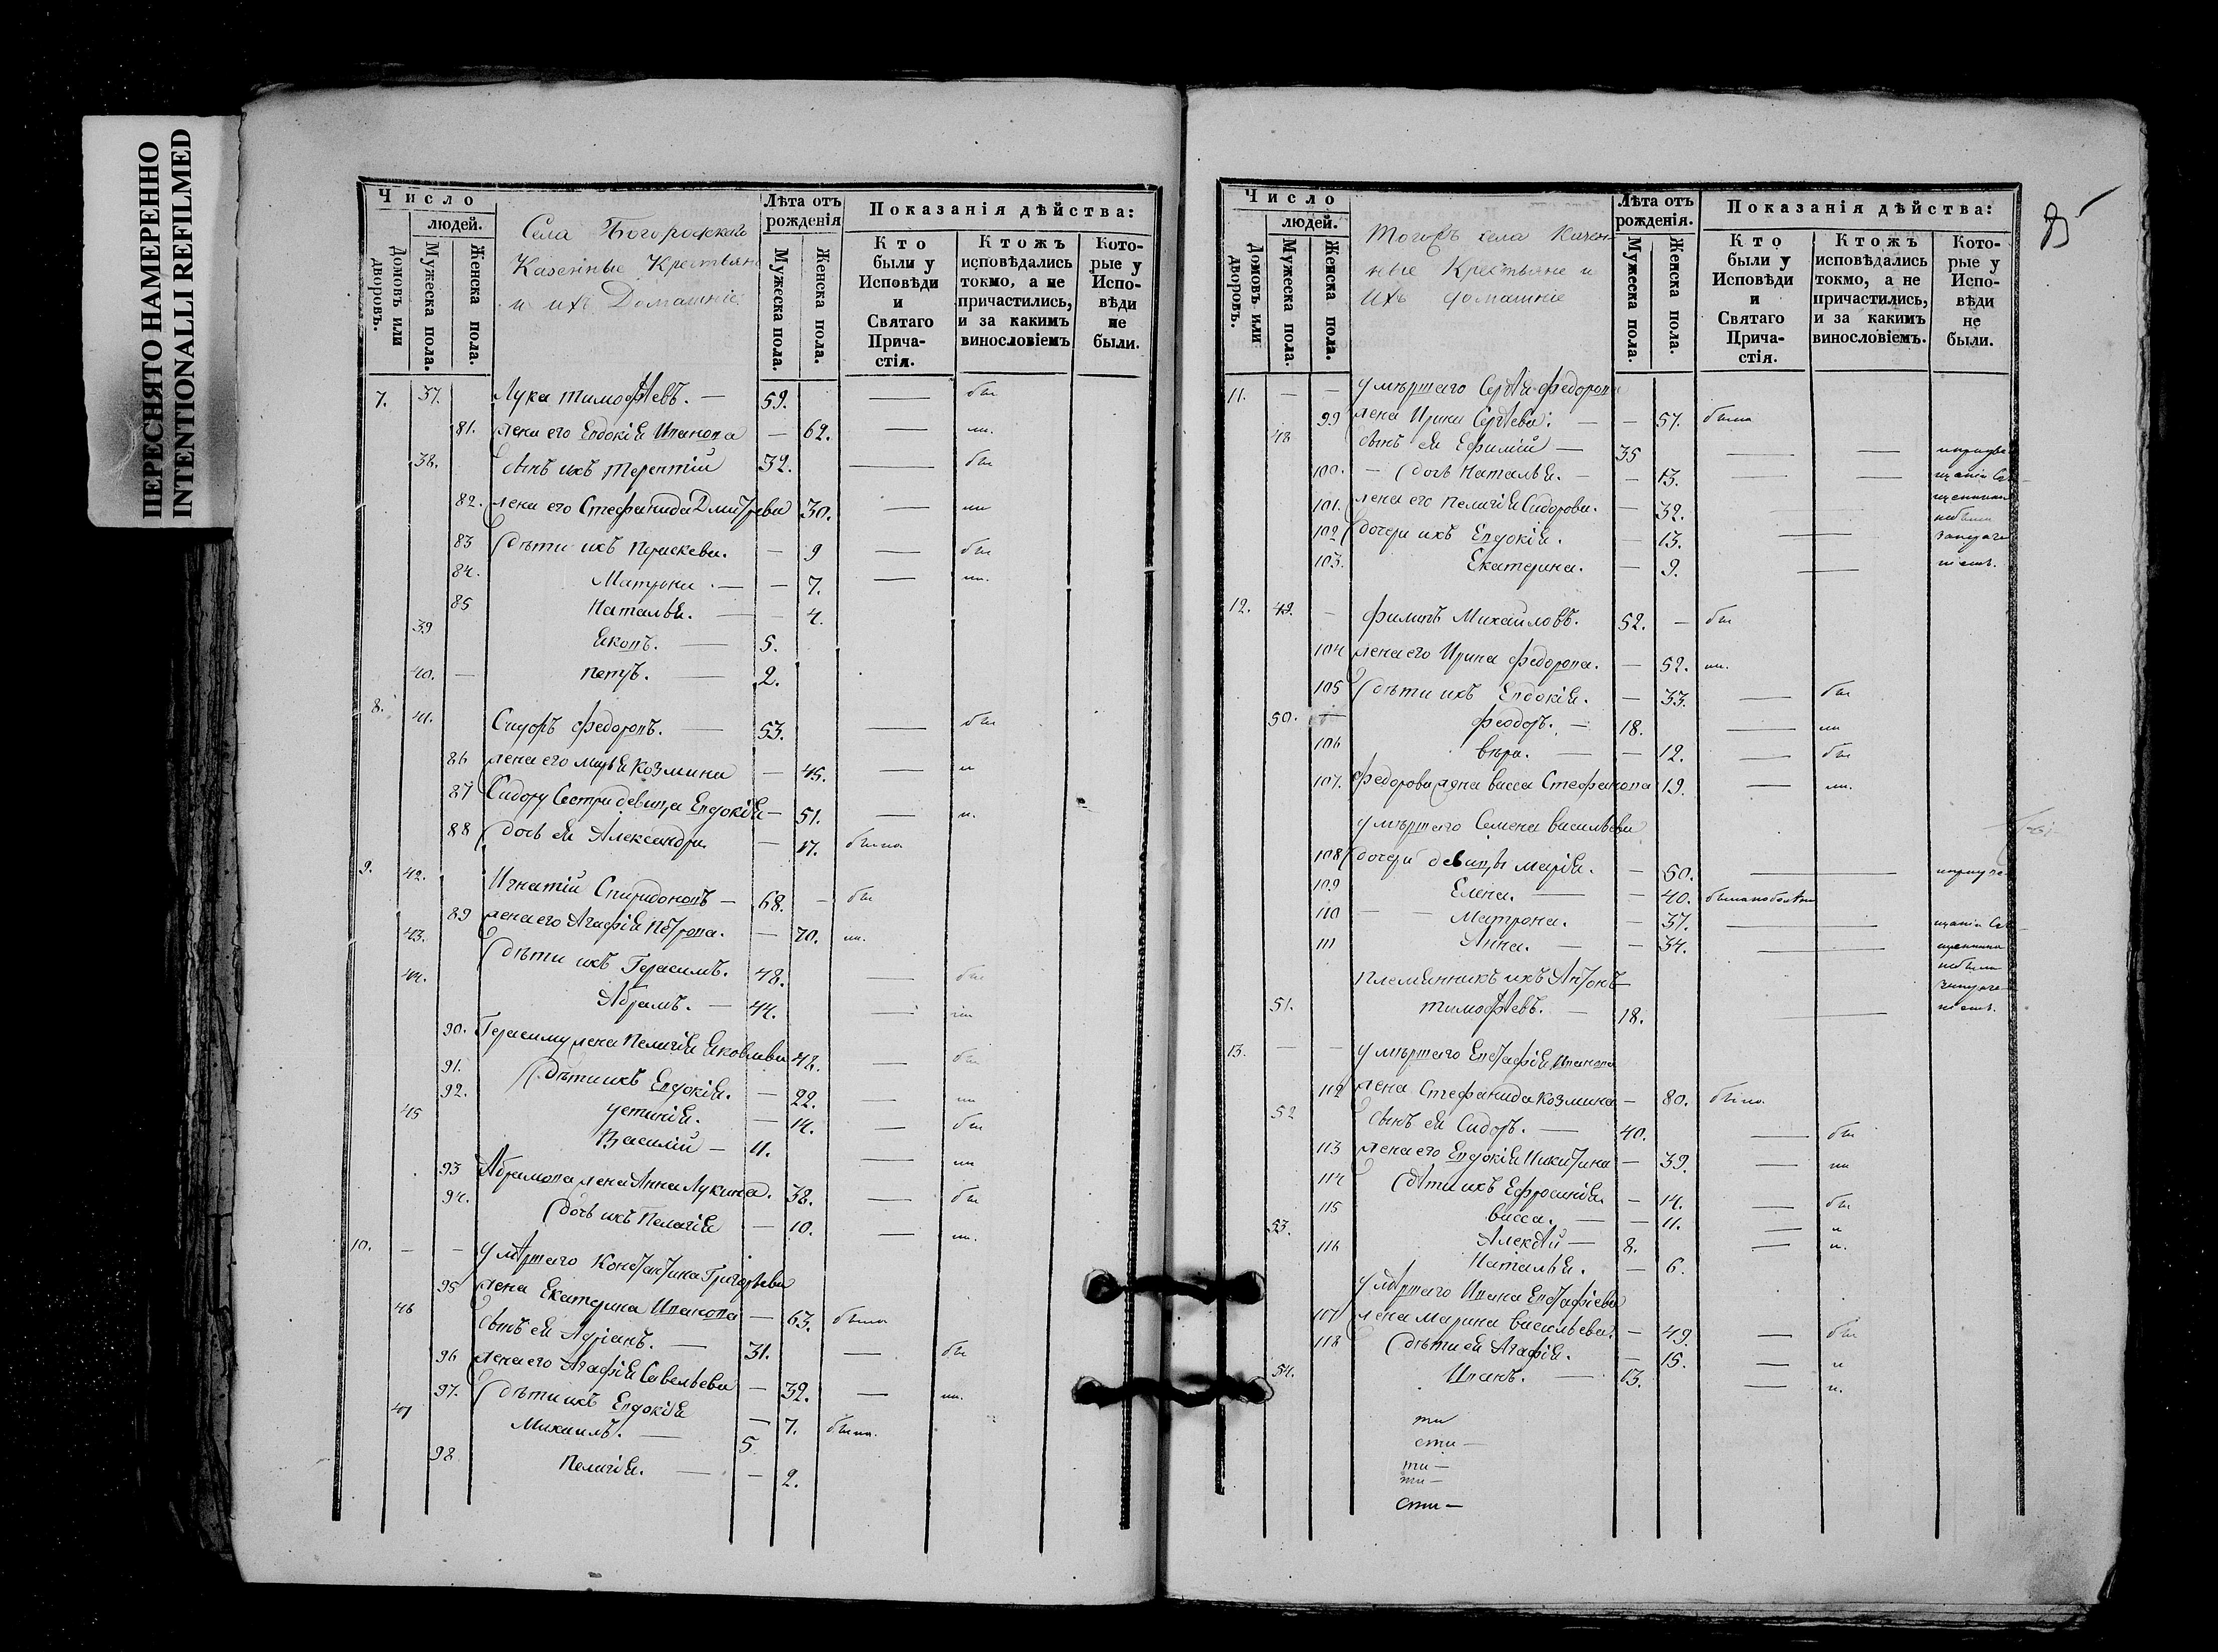 ПЕРЕСНЯТО НАМЕРЕННО
INTENTIONALLI REFILMED
Число
людей.
Домовъ или дворовъ.
Мужеска пола.
Женска пола.
Села Богородскаго
Казенные Крестьяне
и ихъ Домашніе:
Лѣта отъ рожденія
Мужеска пола.
Женска пола.
Показанія дѣйства:
Кто были у Исповѣди и Святаго Прича-стія.
Ктожъ исповѣдались токмо, а не причастились, и за какимъ винословіемъ
Кото-рые у Испо-вѣди не были.
7. 37. Лука Тимофѣевъ. — 59. — бы
81. жена его Евдокія Иванова — 62. —
38. сынъ ихъ Терентій 32. — бы
82. жена его Стефанида Дмитрева 30. —
83 дѣти ихъ Параскева. — 9 — бы
84. Матрона. — — 7. —
85 Наталья. — — 4.
39 Яковъ. — 5.
40. — Петръ. — 2.
8. 41. Сидоръ Федоровъ. — 53. — бы
86 жена его Марья Козмина — 45. —
87 Сидору сестра девица Евдокія — 51. —
88 дочь ея Александра — 17. была
9. 42. Игнатій Спиридоновъ — 68. — бы
89 жена его Агафія Петрова. — 70.
43. дѣти ихъ Герасимъ. 48. — бы
44. Абрамъ. — 44. —
90. Герасиму жена Пелагія Яковлева 48. — бы
91. дѣти ихъ Евдокія. — 22. —
92. Устинія. — 14. — бы
45 Василій — 11. —
93 Абрамова жена Анна Лукина. 38. — бы
94. дочь ихъ Пелагія — 10. —
10. — — умѣршаго Константина Григорьева
95 жена Екатерина Иванова — 63. была
46 сынъ ея Адріанъ. — 31. — бы
96 жена его Агафія Савельева — 32. —
97. дѣти ихъ Евдокія — 7. была.
47 Михаилъ. — 5.
98 Пелагія. — — 2.
Число
людей.
Домовъ или дворовъ.
Мужеска пола.
Женска пола.
Тогожъ села Казен-
ные Крестьяне и
Ихъ домашніе
Лѣта отъ рожденія.
Мужеска пола.
Женска пола.
Показанія дѣйства:
Кто были у Исповѣди и Святаго Прича-стія.
Ктожъ исповѣдались токмо, а не причастились, и за какимъ винословіемъ.
Кото-рые у Испо-вѣди не были.
11. — — умѣршаго Сергѣя Федорова
99 жена Ирина Сергѣева. — — 57. была
48 сынъ ея Ефимій — 35 — —
100. — дочь Наталья. — — 13. — —
101. жена его Пелагія Сидорова. — 32. —
102 дочери ихъ Евдокія. — 13. —
103. Екатерина. — 9. —
12. 49. — Филипъ Михайловъ. 52. — бы
104 жена его Ирина Федорова. — 52.
105 дѣти ихъ Евдокія. — 33. — бы
50. — Феодоръ. — 18. —
106 Вѣра. — — 12. — бы
107. Федорова жена Васса Стефанова 19. —
умѣршаго Семена Васильева
108 дочери девицы Марія. — 50. —
109 Елена. — — 40.
110 — — Матрона. — 37. —
111 Анна. — — 34. —
племянникъ ихъ Антонъ
51. Тимофѣевъ. — 18. —
13. — — умѣршаго Евстафія Иванова
112 жена Стефанида Козмина — 80. была
52 сынъ ея Сидоръ. — 40. — бы
113 жена его Евдокія Никитина — 39. —
114 дѣти ихъ Ефросинія — 14. — бы
115 Васса. — — 11. —
53. Алексѣй — 8. —
116 Наталья. — 6.
умѣршаго Ивана Евстафіева
107 жена Марина Васильева. — 49. — бы
118 дѣти ея Агафія. — 15. —
54. Иванъ. — 13. —